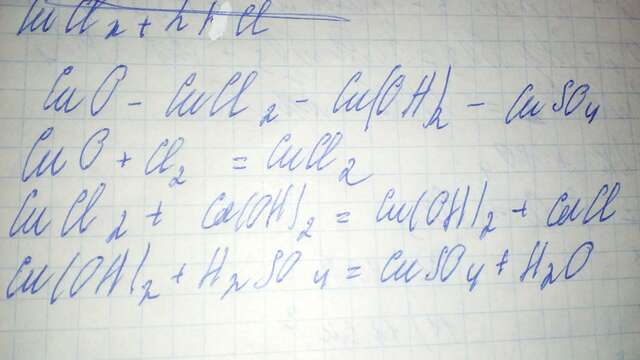 CuCl₂ + 2HCl
CuO - CuCl₂ - Cu(OH)₂ - CuSO₄
CuO + Cl₂ = CuCl₂
CuCl₂ + Ca(OH)₂ = Cu(OH)₂ + CaCl
Cu(OH)₂ + H₂SO₄ = CuSO₄ + H₂O